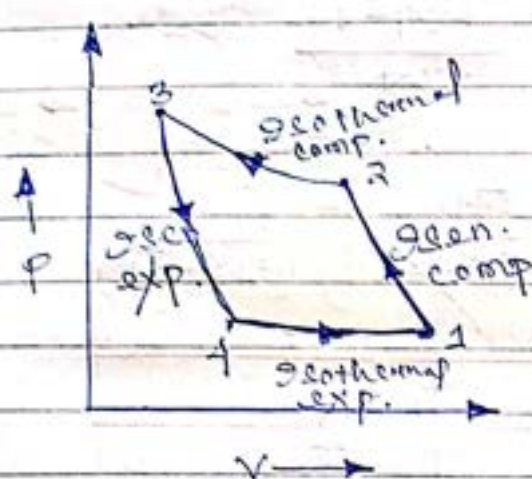 3
Isothermal
comp.
2
P
Isen.
exp.
Isen.
comp
4
1
Isothermal
exp.
V